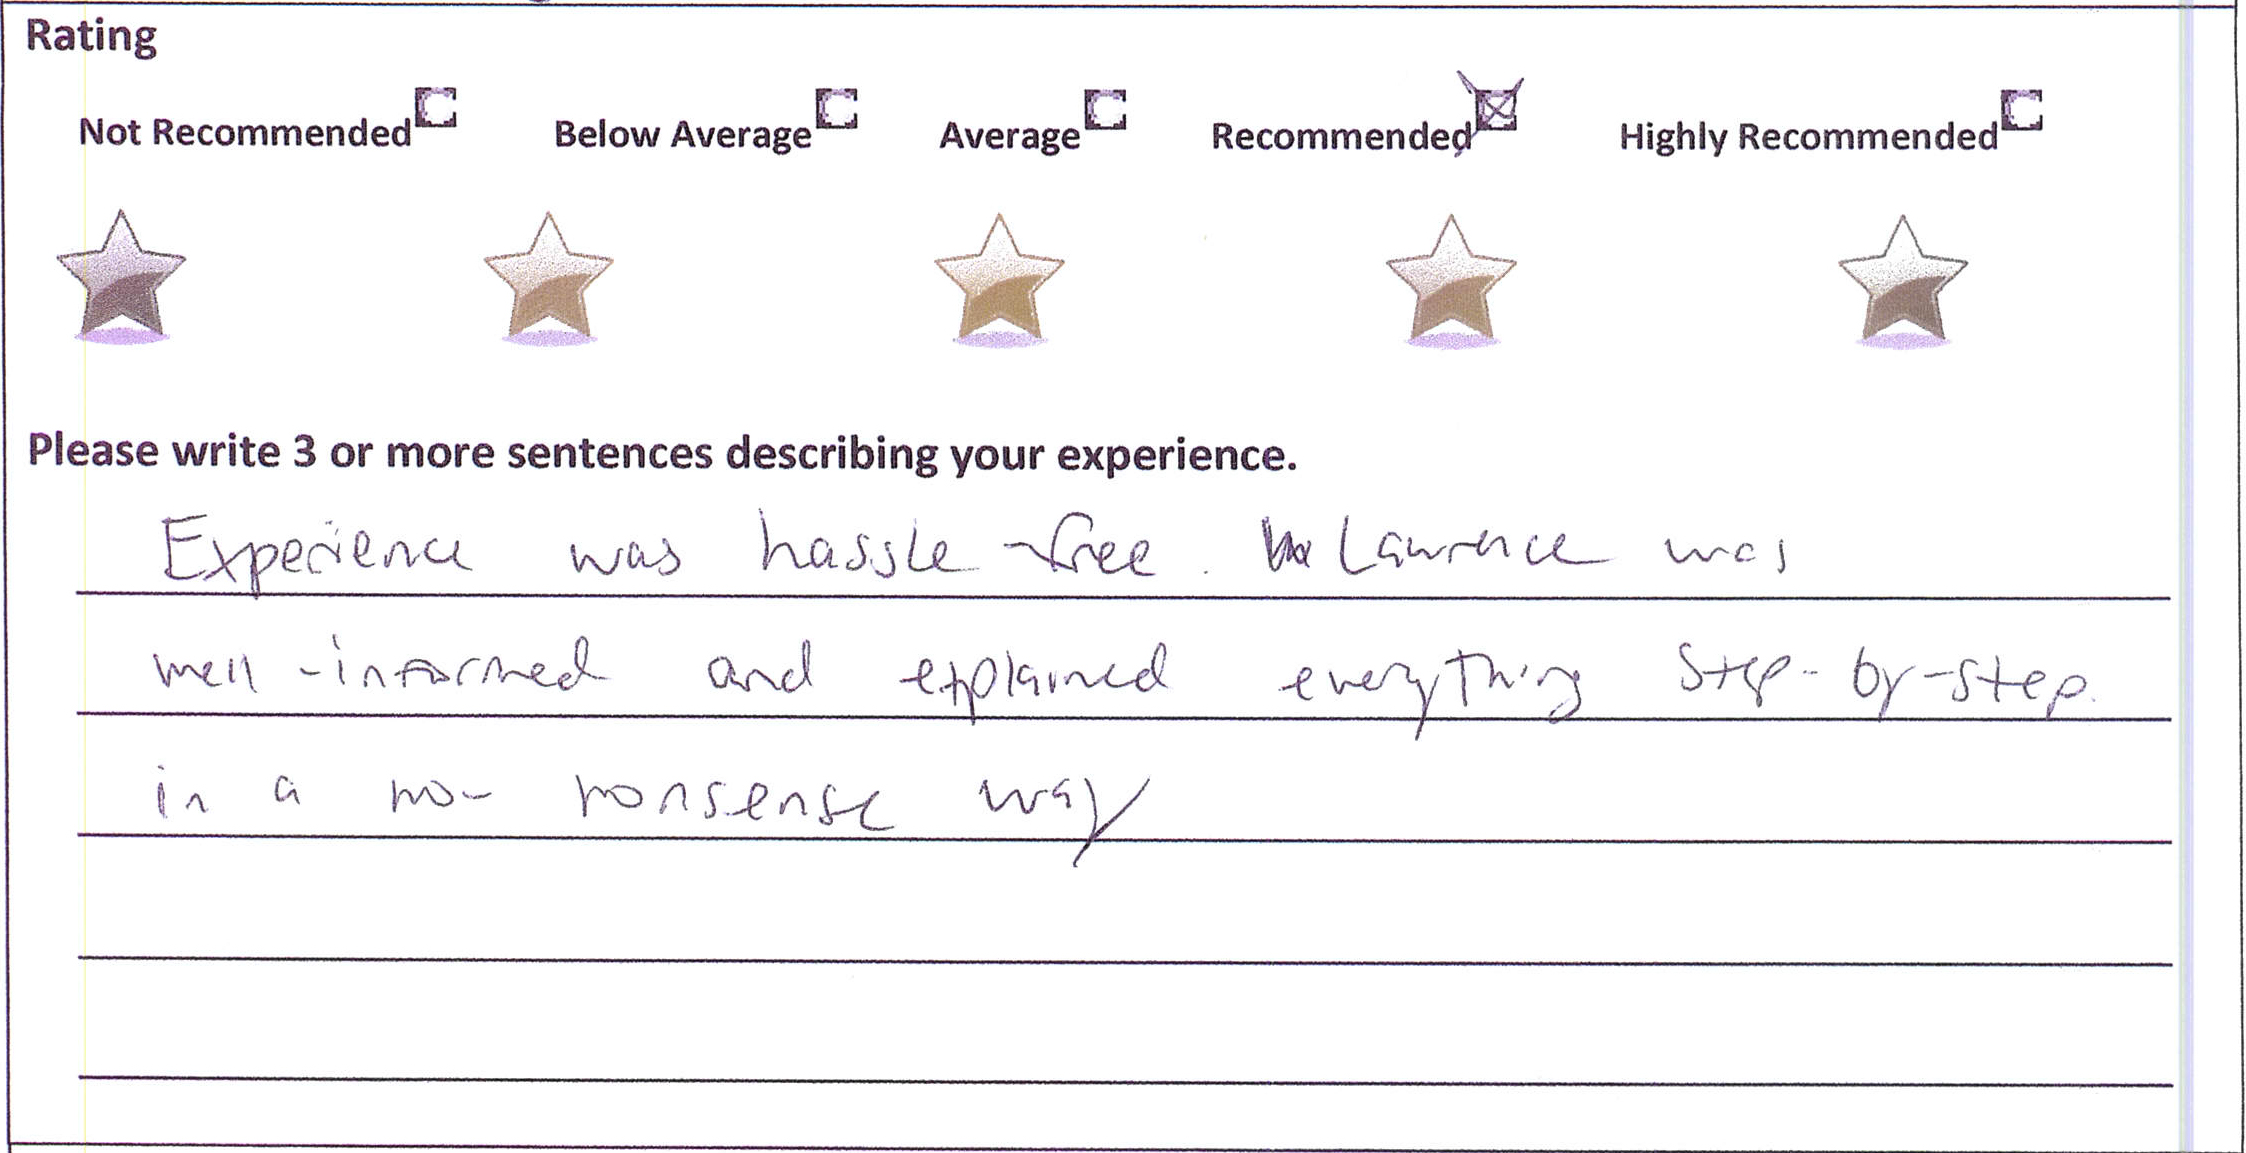 Rating
Not Recommended Below Average Average Recommended Highly Recommended
Please write 3 or more sentences describing your experience.
Experience was hassle-free. Lawrence was
well-informed and explained everything step-by-step.
in a no-nonsense way